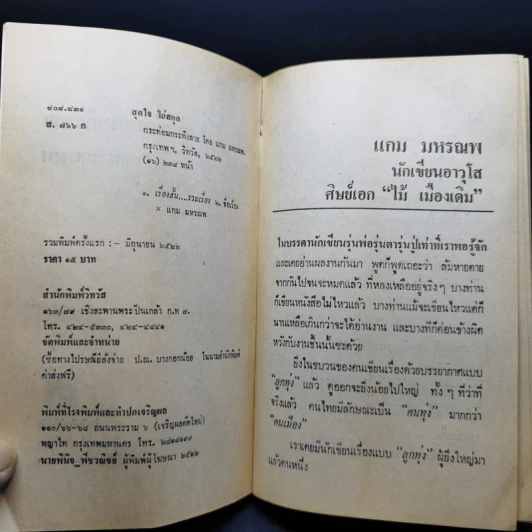 ๘๐๙.๘๓๑ สุดใจ ไถ่สกุล
ส. ๗๖๖ ก กระท่อมกระทิงลาย โดย แกม มหรณพ.
กรุงเทพฯ. วิทวัส, ๒๕๒๒
(๑๖) ๒๓๘ หน้า
๑. เรื่องสั้น....รวมเรื่อง ๒. ชื่อเรื่อง
× แกม มหรณพ
รวมพิมพ์ครั้งแรก :- มิถุนายน ๒๕๒๒
ราคา ๑๕ บาท
สำนักพิมพ์วิทวัส
๑๖๓/๗๑ เชิงสะพานพระปิ่นเกล้า ก.ท ๗.
โทร. ๔๒๔-๕๓๓๐, ๔๒๔-๔๘๔๑
จัดพิมพ์และจำหน่าย
(ซื้อทางไปรษณีย์สั่งจ่าย ป.ณ. บางกอกน้อย ในนามสำนักพิมพ์
ค่าส่งฟรี)
พิมพ์ที่โรงพิมพ์และทำปกเจริญผล
๑๑๐/๖๖-๖๘ ถนนพระราม ๖ (เจริญผลตัดใหม่)
พญาไท กรุงเทพมหานคร โทร.
นายพินิจ พืชวณิชย์ ผู้พิมพ์ผู้โฆษณา ๒๕๒๒
แกม มหรณพ
นักเขียนอาวุโส
ศิษย์เอก “ไม้ เมืองเดิม”
ในบรรดานักเขียนรุ่นพ่อรุ่นตารุ่นปู่เท่าที่เราพอรู้จัก
และเคยอ่านผลงานกันมา พูดก็พูดเถอะว่า ล้มหายตาย
จากกันไปจนจะหมดแล้ว ที่หลงเหลืออยู่จริงๆ บางท่าน
ก็เขียนหนังสือไม่ไหวแล้ว บางท่านแม้จะเขียนไหวแต่ก็
นานเหลือเกินกว่าจะได้อ่านงาน และบางทีก็ค่อนข้างผิด
หวังกับงานชิ้นนั้นซะด้วย
ยิ่งในขบวนของคนเขียนเรื่องด้วยบรรยากาศแบบ
“ลูกทุ่ง” แล้ว ดูออกจะยิ่งน้อยไปใหญ่ ทั้ง ๆ ที่ว่าที่
จริงแล้ว คนไทยมีลักษณะเป็น “คนทุ่ง” มากกว่า
“คนเมือง”
เราเคยมีนักเขียนเรื่องแบบ “ลูกทุ่ง” ผู้ยิ่งใหญ่มา
แล้วคนหนึ่ง